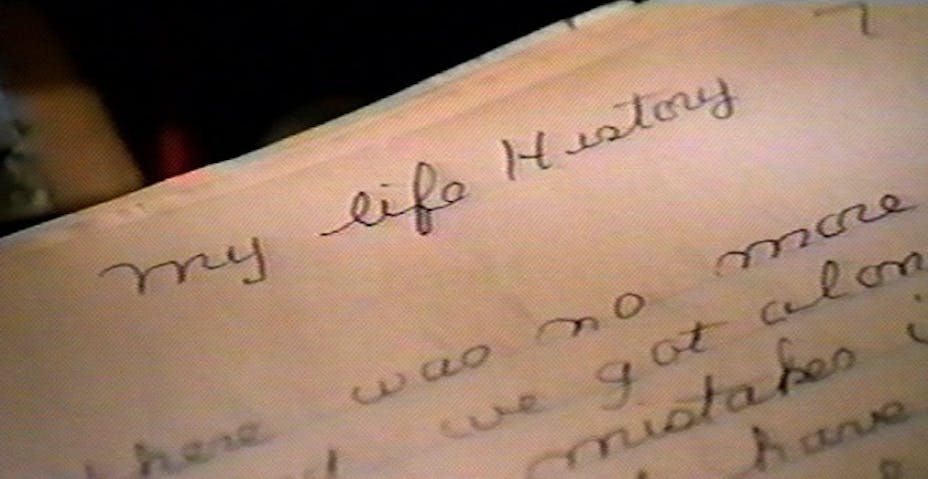 7
my life History
there was no more
we got alon
mistakes i
have